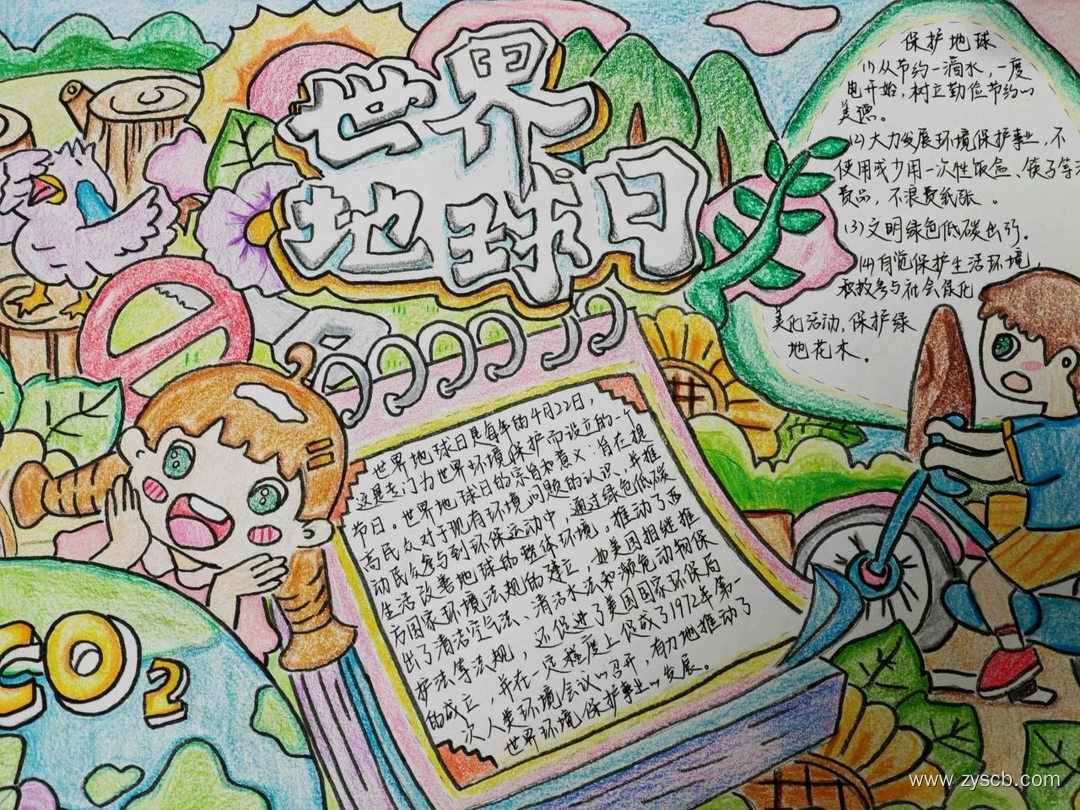 世界
地球日
保护地球
(1)从节约一滴水,一度
电开始,树立勤俭节约的
美德。
(2)大力发展环境保护事业,不
使用或少用一次性饭盒、筷子等消
费品,不浪费纸张。
(3)文明绿色低碳出行。
(4)自觉保护生活环境,
积极参与社会绿化
美化活动,保护绿
地花木。
世界地球日是每年的4月22日,
这是专门为世界环境保护而设立的一个
节日。世界地球日的宗旨和意义:旨在提
高民众对于现有环境问题的认识,并推
动民众参与到环保运动中,通过绿色低碳
生活改善地球的整体环境,推动了西
方国家环境法规的建立,如美国相继推
出了清洁空气法、清洁水法和濒危动物保
护法等法规,还促进了美国国家环保局
的成立,并在一定程度上促成了1972年第一
次人类环境会议的召开,有力地推动了
世界环境保护事业的发展。
CO2
www.zyscb.com